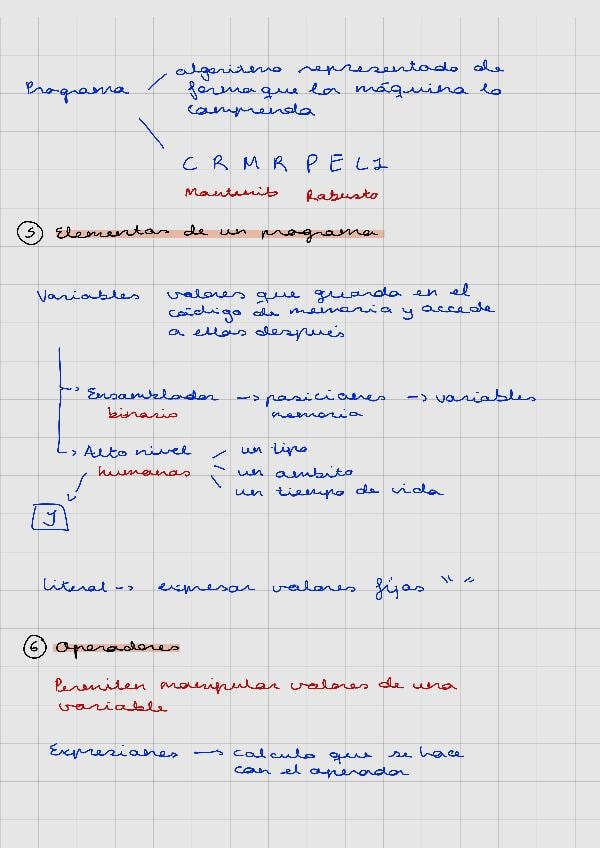 algoritmo representado de
Programa forma que la máquina lo
comprenda
C R M R P E L I
Mantenib Robusto
5 Elementos de un programa
Variables valores que guarda en el
código de memoria y accede
a ellos después
Ensamblador -> posiciones -> variables
binario memoria
Alto nivel un tipo
humanos un ambito
un tiempo de vida
J
Literal -> expresar valores fijos " "
6 Operadores
Permiten manipular valores de una
variable
Expresiones -> calculo que se hace
con el operador